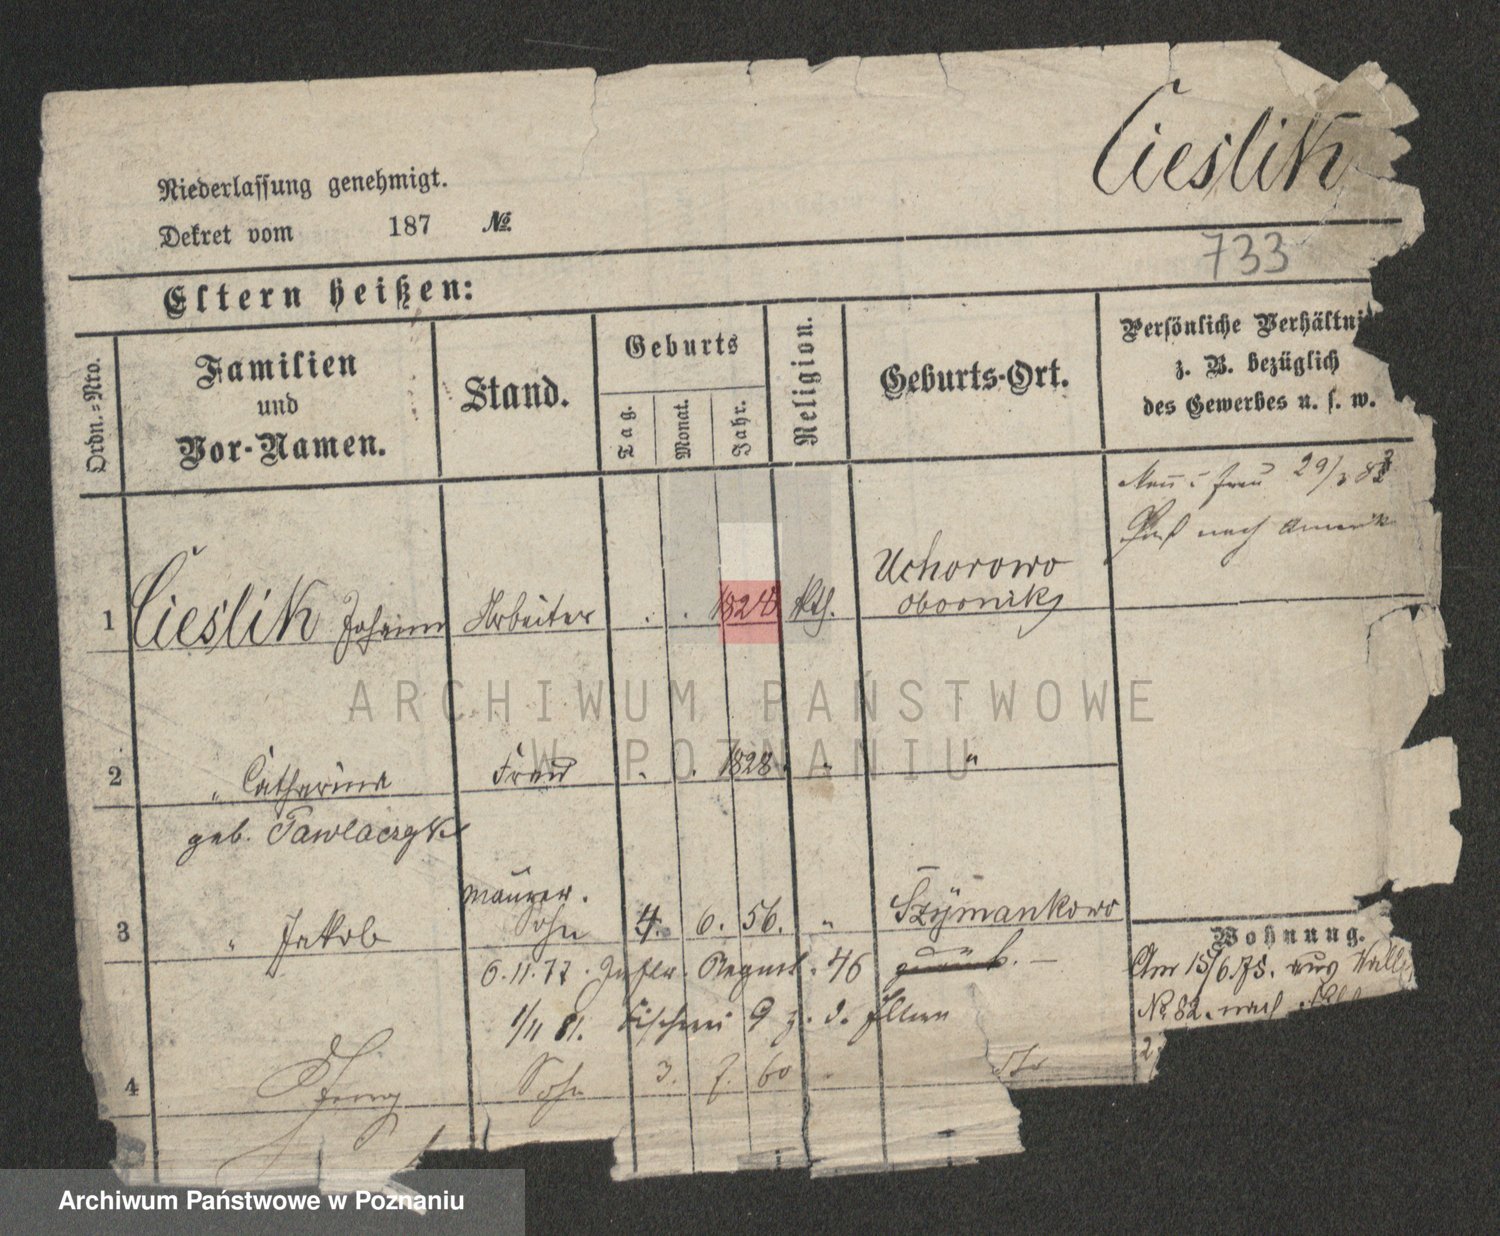 Cieslik
Niederlassung genehmigt.
Dekret vom 187 №
733
Eltern heißen:
Ordn.=Nro.
Familien
und
Vor-Namen.
Stand.
Geburts
Tag.
Monat.
Jahr.
Religion.
Geburts-Ort.
Persönliche Verhältni
z. B. bezüglich
des Gewerbes u. s. w.
29/3 8
nach Amerik
1 Cieślik Johann Arbeiter . . 1824 kth. Uchorowo
Obornik
ARCHIWUM PAŃSTWOWE
W POZNANIU
2 " Catharina Frau . . 1828. " "
geb. Pawlaczyk
Maurer.
3 " Jakob Sohn 4. 6. 56. " Szymankowo
6.11.77. 46
1/11 81. Fischerei 9 z. d. Eltern
Wohnung.
Am 15/6.75. aus Wall
No 82. nach
4 Sohn 3. 7. 60
Archiwum Państwowe w Poznaniu